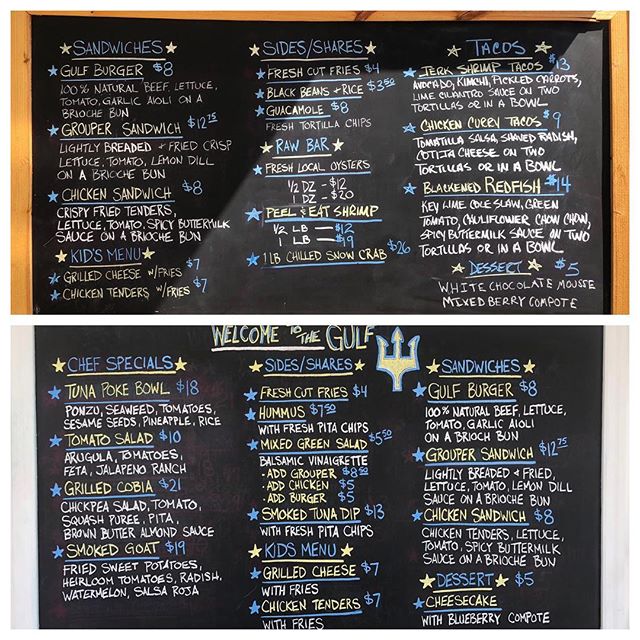 SANDWICHES
GULF BURGER $8
100% NATURAL BEEF, LETTUCE,
TOMATO, GARLIC AIOLI ON A
BRIOCHE BUN
GROUPER SANDWICH $12.75
LIGHTLY BREADED + FRIED CRISP
LETTUCE, TOMATO, LEMON DILL
ON A BRIOCHE BUN
CHICKEN SANDWICH $8
CRISPY FRIED TENDERS,
LETTUCE, TOMATO, SPICY BUTTERMILK
SAUCE ON A BRIOCHE BUN
KID'S MENU
GRILLED CHEESE W/FRIES $7
CHICKEN TENDERS W/FRIES $7
SIDES/SHARES
FRESH CUT FRIES $4
BLACK BEANS + RICE $3.50
GUACAMOLE $8
FRESH TORTILLA CHIPS
RAW BAR
FRESH LOCAL OYSTERS
1/2 DZ - $12
1 DZ - $20
PEEL + EAT SHRIMP
1/2 LB — $12
1 LB — $19
1 LB CHILLED SNOW CRAB $26
TACOS
JERK SHRIMP TACOS $13
AVOCADO, KIMCHI, PICKLED CARROTS,
LIME CILANTRO SAUCE ON TWO
TORTILLAS OR IN A BOWL
CHICKEN CURRY TACOS $9
TOMATILLA SALSA, SHAVED RADISH,
COTIJA CHEESE ON TWO
TORTILLAS OR IN A BOWL
BLACKENED REDFISH $14
KEY LIME COLE SLAW, GREEN
TOMATO, CAULIFLOWER CHOW CHOW,
SPICY BUTTERMILK SAUCE ON TWO
TORTILLAS OR IN A BOWL
DESSERT $5
WHITE CHOCOLATE MOUSSE
MIXED BERRY COMPOTE
WELCOME TO THE GULF
CHEF SPECIALS
TUNA POKE BOWL $18
PONZU, SEAWEED, TOMATOES,
SESAME SEEDS, PINEAPPLE, RICE
TOMATO SALAD $10
ARUGULA, TOMATOES,
FETA, JALAPENO RANCH
GRILLED COBIA $21
CHICKPEA SALAD, TOMATO,
SQUASH PUREE, PITA,
BROWN BUTTER ALMOND SAUCE
SMOKED GOAT $19
FRIED SWEET POTATOES,
HEIRLOOM TOMATOES, RADISH,
WATERMELON, SALSA ROJA
SIDES/SHARES
FRESH CUT FRIES $4
HUMMUS $7.50
WITH FRESH PITA CHIPS
MIXED GREEN SALAD $5.50
BALSAMIC VINAIGRETTE
- ADD GROUPER $8.50
- ADD CHICKEN $5
- ADD BURGER $5
SMOKED TUNA DIP $13
WITH FRESH PITA CHIPS
KID'S MENU
GRILLED CHEESE $7
WITH FRIES
CHICKEN TENDERS $7
WITH FRIES
SANDWICHES
GULF BURGER $8
100% NATURAL BEEF, LETTUCE,
TOMATO, GARLIC AIOLI
ON A BRIOCH BUN
GROUPER SANDWICH $12.75
LIGHTLY BREADED + FRIED,
LETTUCE, TOMATO, LEMON DILL
SAUCE ON A BRIOCHE BUN
CHICKEN SANDWICH $8
CHICKEN TENDERS, LETTUCE,
TOMATO, SPICY BUTTERMILK
SAUCE ON A BRIOCHE BUN
DESSERT $5
CHEESECAKE
WITH BLUEBERRY COMPOTE